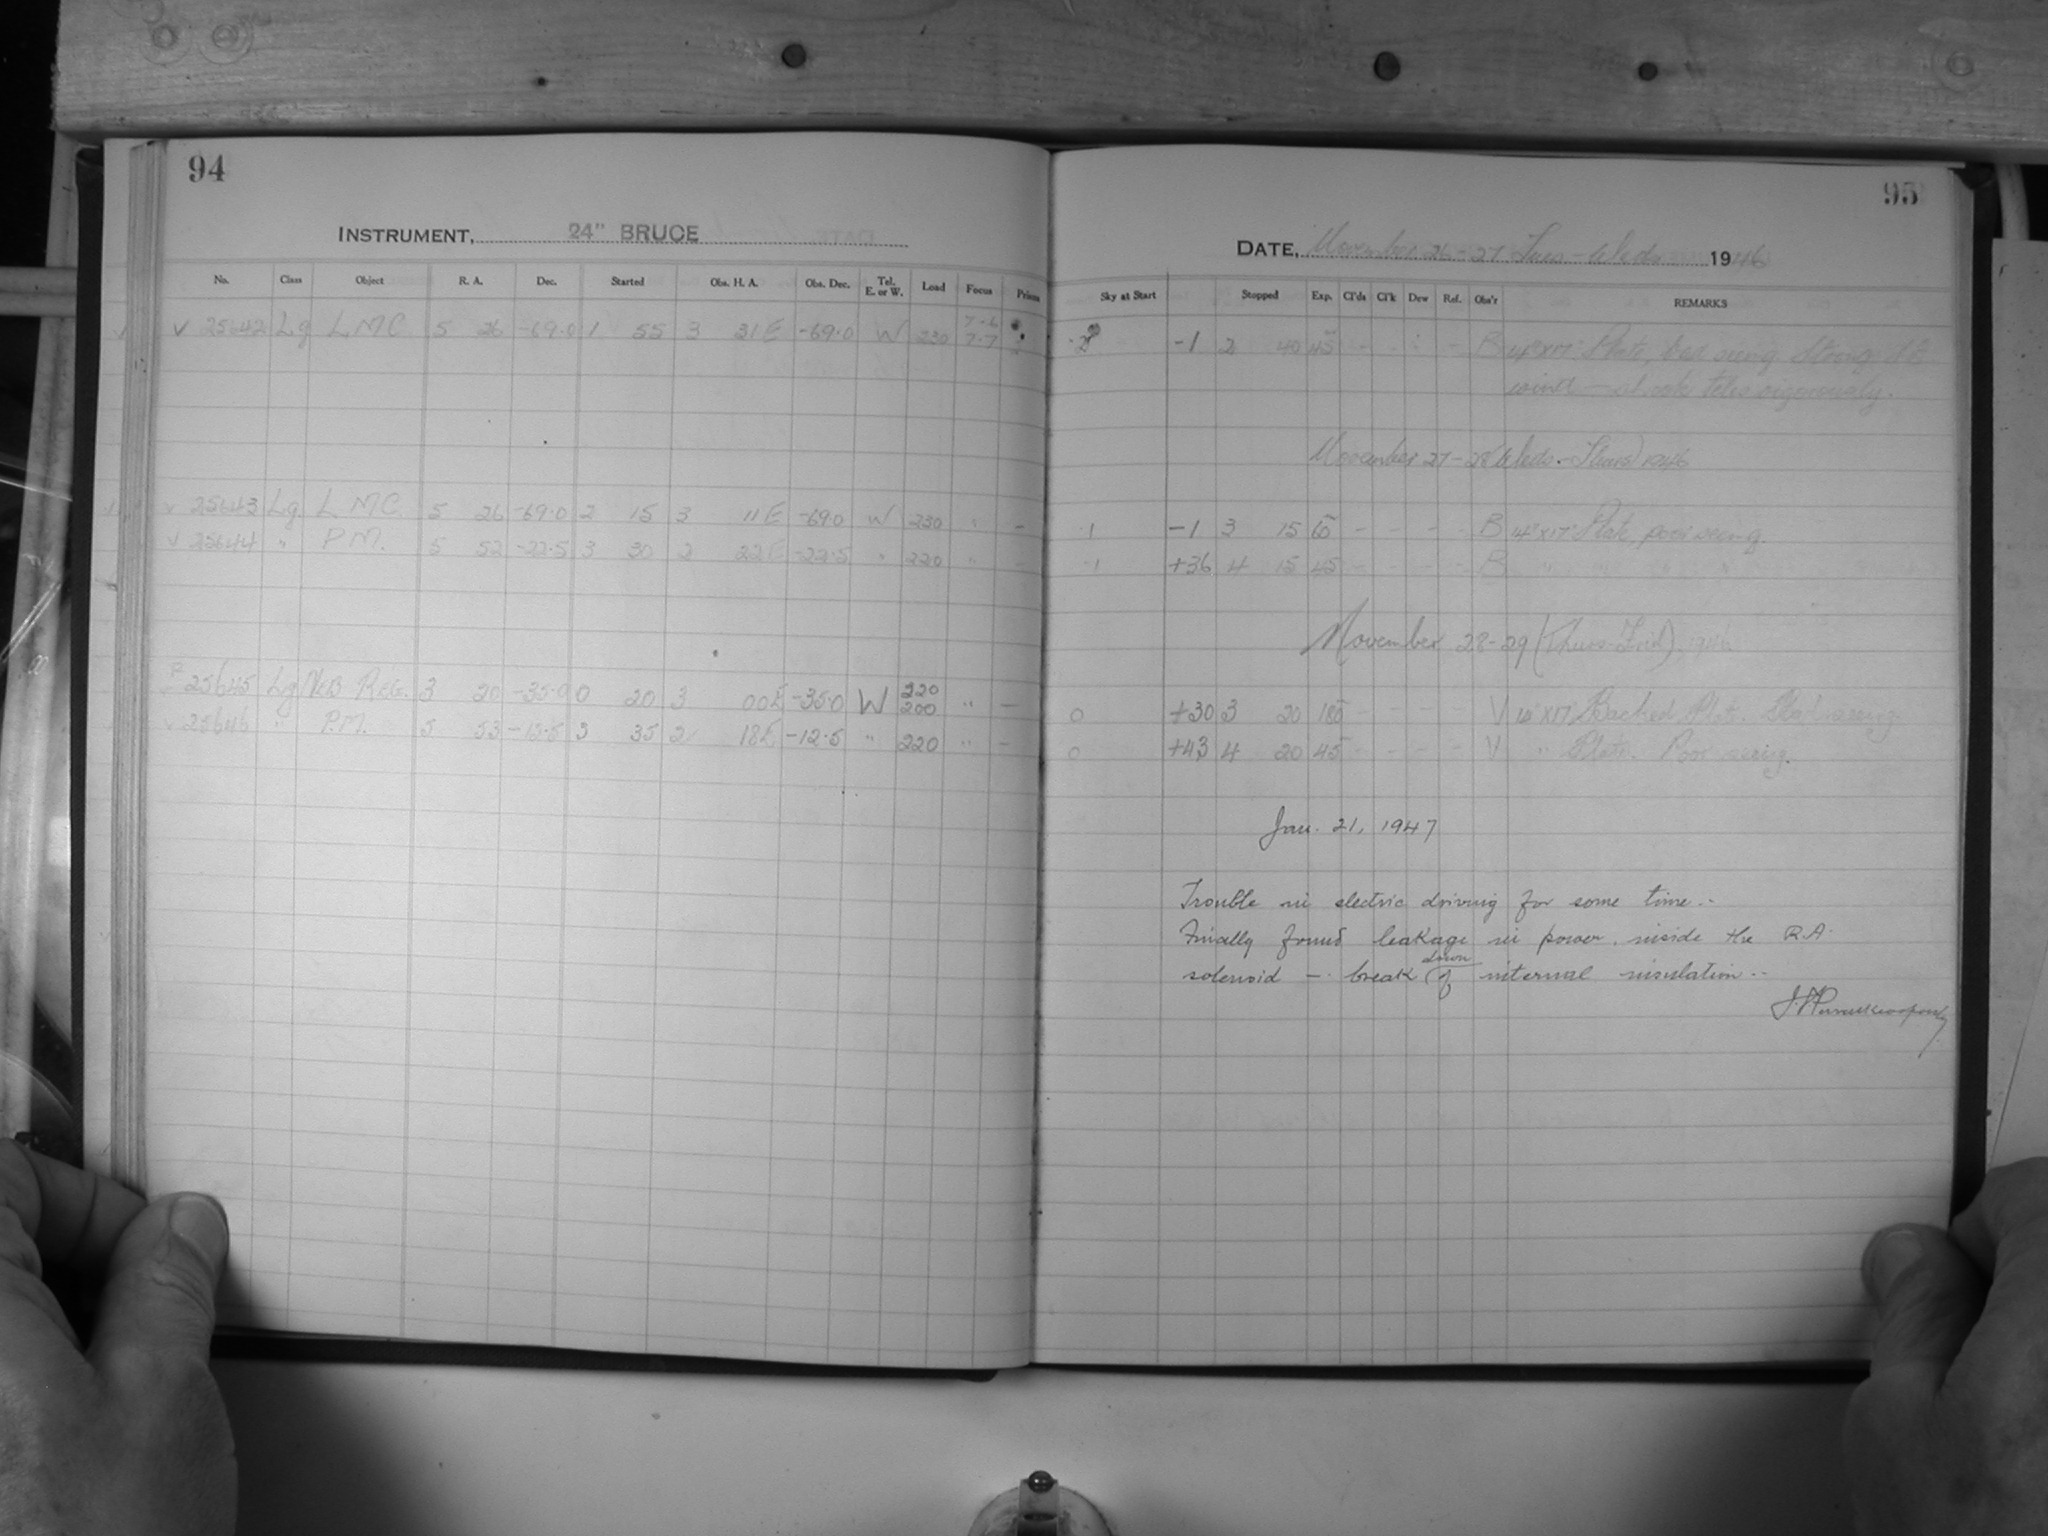 94
INSTRUMENT, 24" BRUCE
No. Class Object R. A. Dec. Started Obs. H. A. Obs. Dec. Tel. E. or W. Load Focus Prism
v 25642 Lg LMC 5 26 -69.0 1 55 3 31E -69.0 W 230 7-6 7-7
v 25643 Lg LMC 5 26 -69.0 2 15 3 11E -69.0 W 230 " -
v 25644 " P.M. 5 52 -22.5 3 30 2 22E -22.5 " 220 " -
25645 Lg 3 20 -35.0 0 20 3 00E -35.0 W 220 200 " -
v 25646 " P.M. 5 53 -12.5 3 35 2 18E -12.5 " 220 " -
95
DATE, November 26-27 Tues-Weds 1946
Sky at Start Stopped Exp. Cl'ds Cl'k Dew Ref. Obs'r REMARKS
-1 2 40 45 - - - B 14"x17" Plate, bad seeing Strong
wind - shook teles vigorously.
November 27-28 Weds.-Thurs 1946
-1 -1 3 15 60 - - - - B 14"x17" Plate, poor seeing.
-1 +36 4 15 45 - - - - B " " " "
November 28-29 (Thurs-Frid), 1946
0 +30 3 20 180 - - - - V 14"x17" Backed Plate. seeing
0 +43 4 20 45 - - - - V " Plate. Poor seeing.
Jan. 21, 1947
Trouble in electric driving for some time..
Finally found leakage in power inside the R.A.
solenoid - break down of internal insulation..